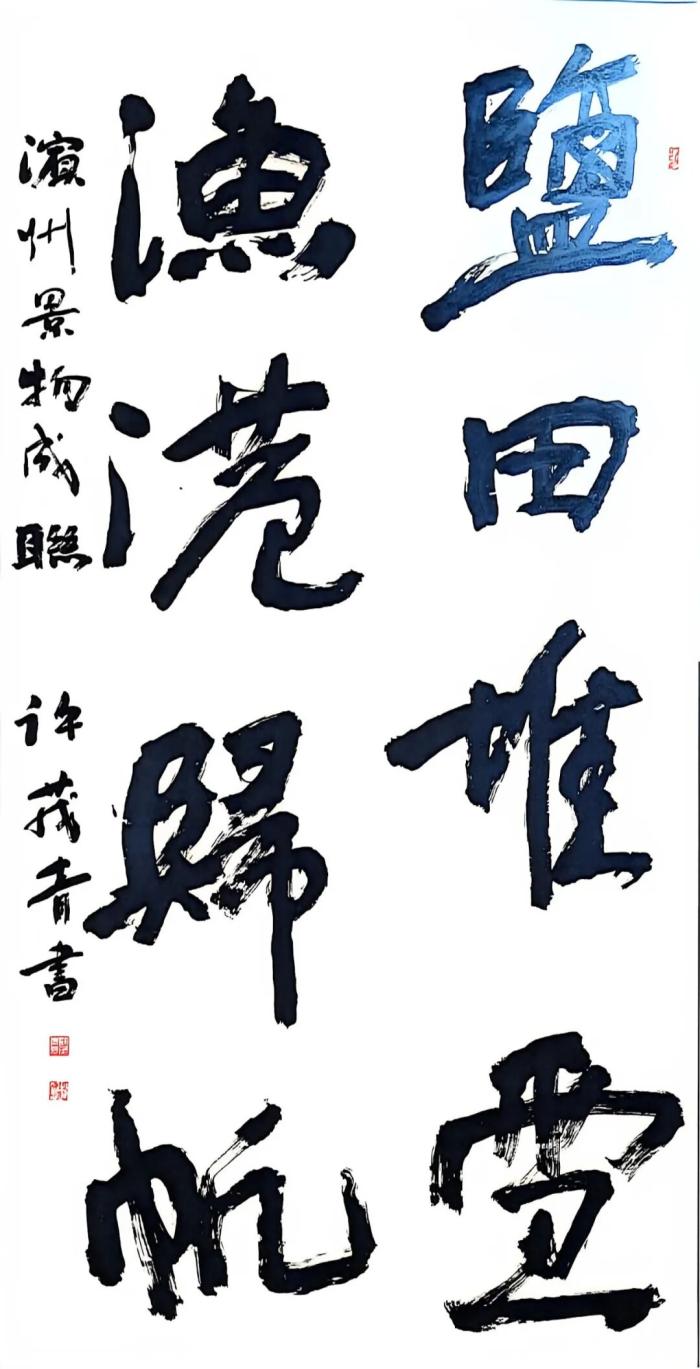 鹽田堆雪
漁港歸帆
濵州景物成聯 许茂青書